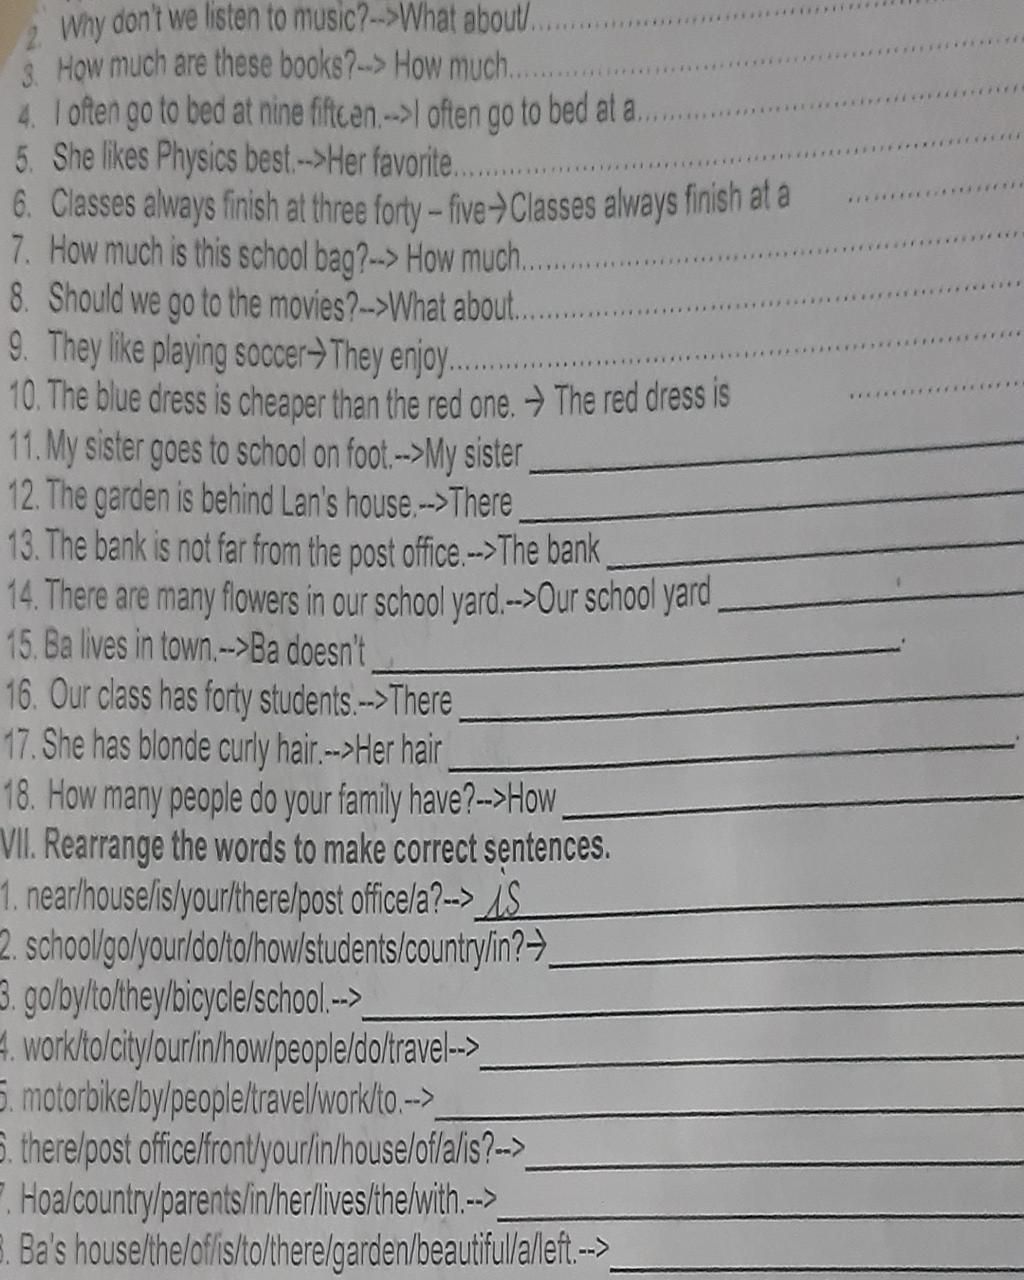 2. Why don't we listen to music?-->What about/.............................
3. How much are these books?--> How much.............................
4. I often go to bed at nine fifteen.-->I often go to bed at a.............................
5. She likes Physics best.-->Her favorite.............................
6. Classes always finish at three forty – five→Classes always finish at a ....................
7. How much is this school bag?--> How much.............................
8. Should we go to the movies?-->What about.............................
9. They like playing soccer→They enjoy.............................
10. The blue dress is cheaper than the red one. → The red dress is ....................
11. My sister goes to school on foot.-->My sister ____________________
12. The garden is behind Lan's house.-->There ____________________
13. The bank is not far from the post office.-->The bank ____________________
14. There are many flowers in our school yard.-->Our school yard ____________________
15. Ba lives in town.-->Ba doesn't ____________________.
16. Our class has forty students.-->There ____________________
17. She has blonde curly hair.-->Her hair ____________________.
18. How many people do your family have?-->How ____________________
VII. Rearrange the words to make correct sentences.
1. near/house/is/your/there/post office/a?--> is ____________________
2. school/go/your/do/to/how/students/country/in?→ ____________________
3. go/by/to/they/bicycle/school.--> ____________________
4. work/to/city/our/in/how/people/do/travel--> ____________________
5. motorbike/by/people/travel/work/to.--> ____________________
6. there/post office/front/your/in/house/of/a/is?--> ____________________
7. Hoa/country/parents/in/her/lives/the/with.--> ____________________
8. Ba's house/the/of/is/to/there/garden/beautiful/a/left.--> ____________________